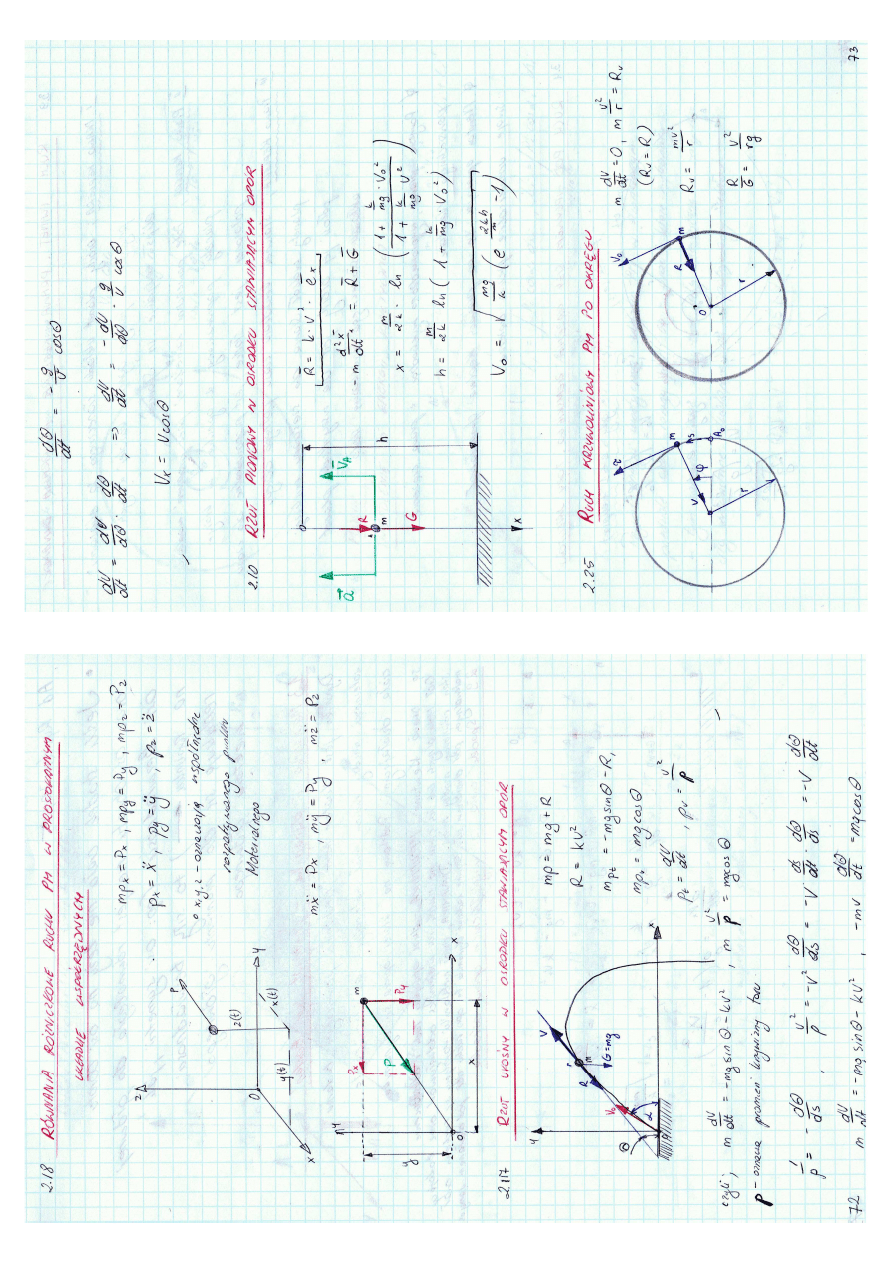 2.18 RÓWNANIA RÓŻNICZKOWE RUCHU PM W PROSTOKĄTNYM
UKŁADZIE WSPÓŁRZĘDNYCH
z
P
z(t)
x(t)
y(t)
0
y
x
mpx = Px , mpy = Py , mpz = Pz
px = ẍ , py = ÿ , pz = z̈
x,y,z - oznaczają współrzędne
rozpatrywanego punktu
Materialnego
y
Px
m
P
Py
y
0
x
x
mẍ = Px , mÿ = Py , mz̈ = Pz
2.17 RZUT UKOŚNY W OŚRODKU STAWIAJĄCYM OPÓR
y
V
r
m
R
G=mg
V₀
θ
α
x
mp = mg + R
R = kV²
mpt = -mg sinθ - R,
mpn = mg cosθ
pt = dV/dt , pν = V²/ρ
czyli; m dV/dt = -mg sinθ - kV² , m V²/ρ = mg cosθ
ρ - oznacza promień krzywizny toru
1/ρ = - dθ/ds , V²/ρ = -V² dθ/ds = -V ds/dt dθ/ds = -V dθ/dt
72 m dV/dt = -mg sinθ - kV² , -mv dθ/dt = mg cosθ
dθ/dt = - g/V cosθ
dV/dt = dV/dθ · dθ/dt , => dV/dt = - dV/dθ · g/V cosθ
Vx = V cosθ
2.10 RZUT PIONOWY W OŚRODKU STAWIAJĄCYM OPÓR
0
a
R
VA
m
G
h
x
R = k · V² · ex
- m d²x/dt² = R + G
x = m/2k · ln ( 1 + k/mg · V₀² / 1 + k/mg V² )
h = m/2k ln ( 1 + k/mg · V₀² )
V₀ = √ mg/k ( e^(2kh/m) - 1 )
2.25 RUCH KRZYWOLINIOWY PM PO OKRĘGU
τ
m
V
φ
s
A₀
r
V₀
m
R
0
r
m dV/dt = 0, m V²/r = Rν
(Rν = R)
Rν = mv²/r
R/G = V²/rg
73